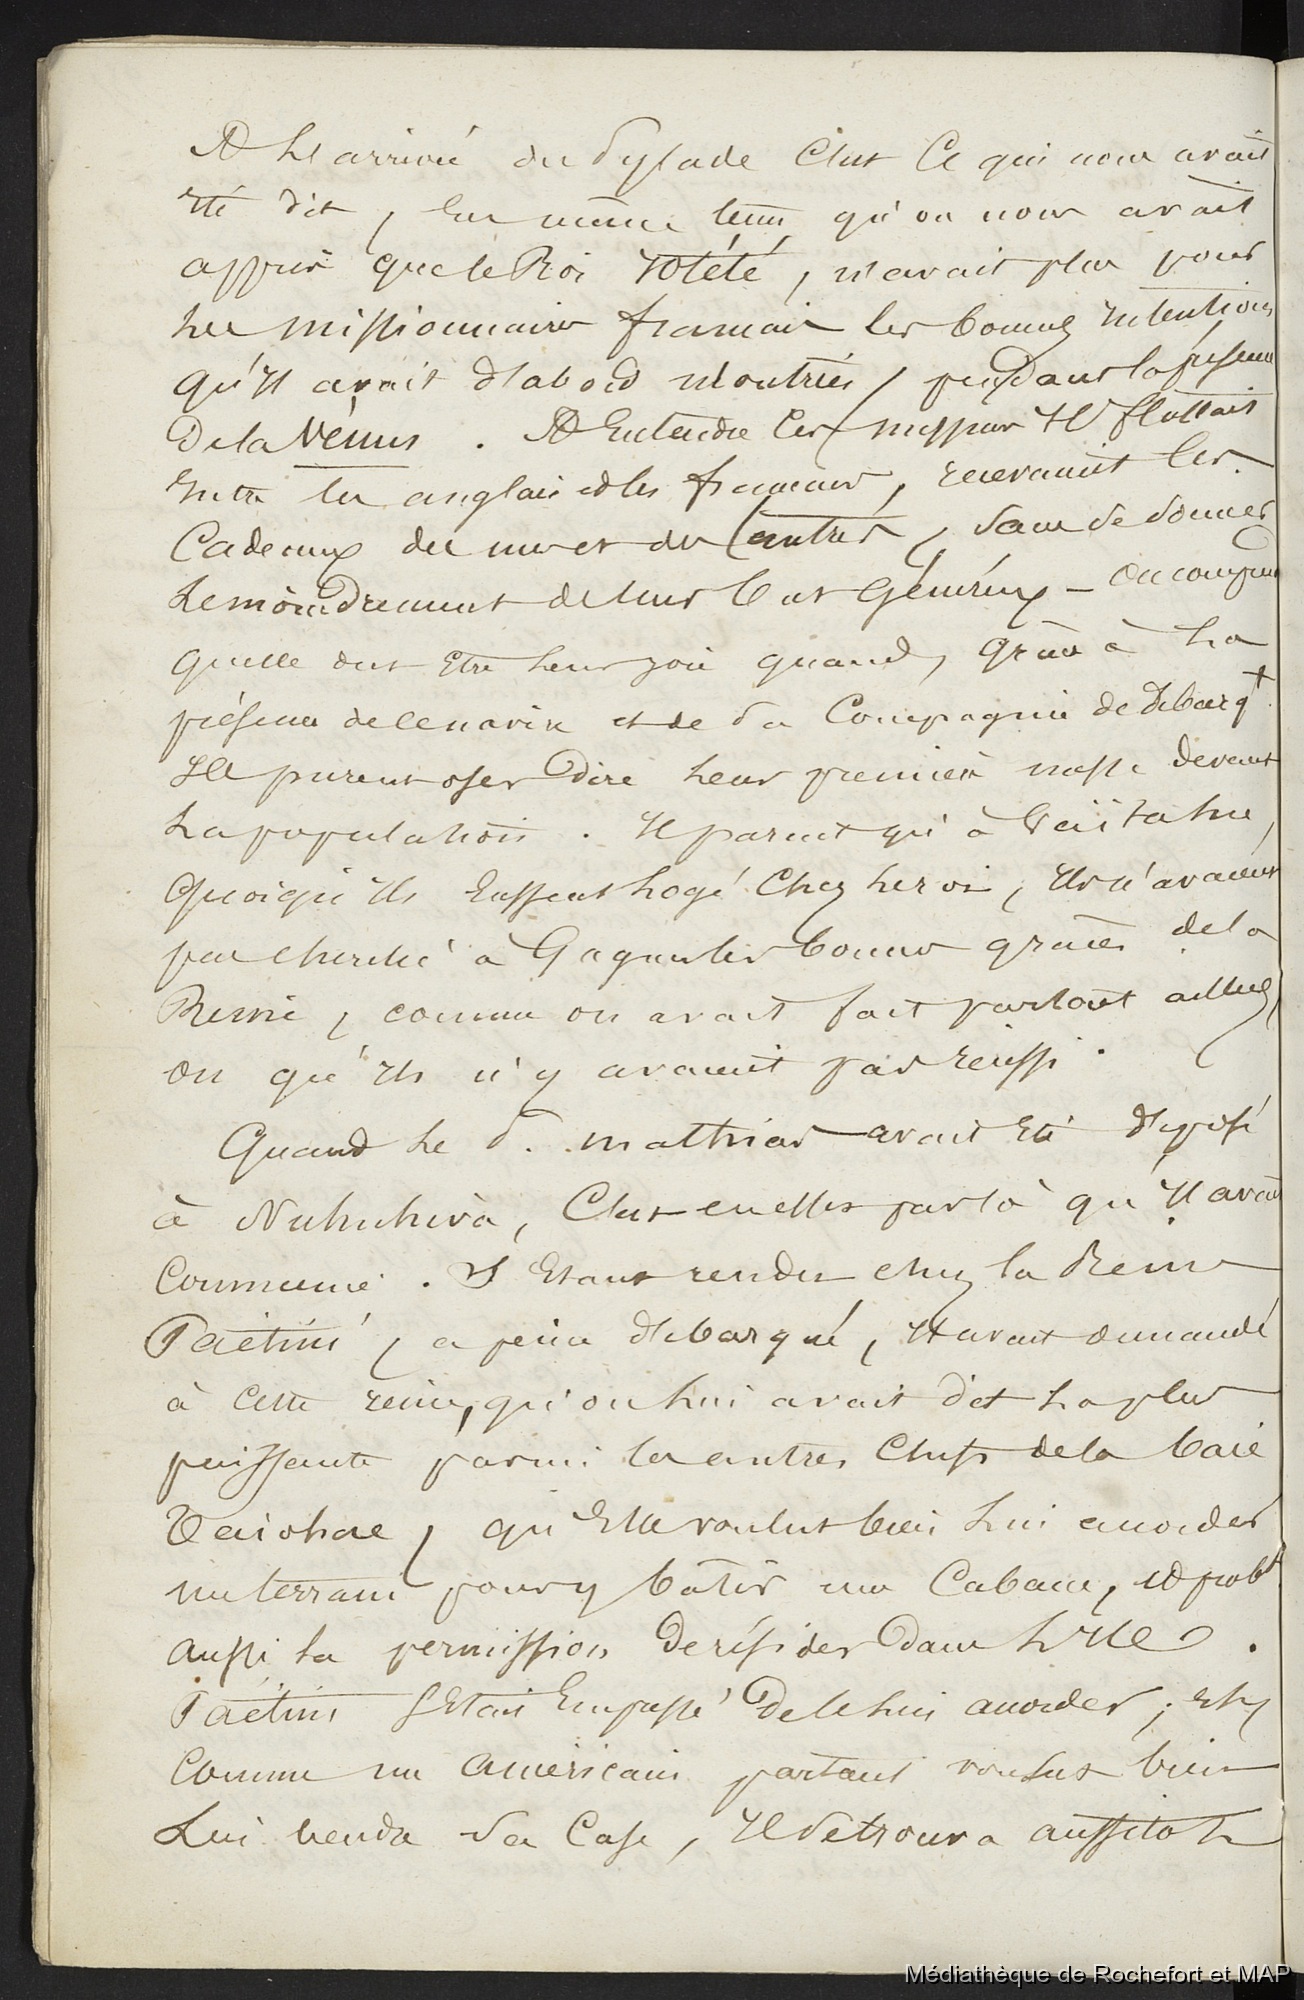 A l'arrivée du Pylade C'est Ce qui nous avait
été dit, En même tems qu'on nous avait
appris que le Roi Iotété, n'avait plus pour
les missionnaires français les bonnes intentions
qu'Il avait d'abord montrées, pendant la présence
De la Vénus. A Entendre Ces messieurs Il flottait
Entre les anglais et les français, recevant les
Cadeaux des uns et des autres, sans se douner
Le moindrement de leur but Généreux - On comprend
quelle dut Etre leur joie quand, grâce à La
présence de ce navire et de sa Compagnie de débarqt.
Ils purent oser Dire leur première messe devant
La population. Il parait qu'à Vaïtahu,
Quoiqu'Ils Eussent Logé Chez le roi, Ils n'avaient
pas cherché à Gagner les bonnes grâces de la
Reine, comme on avait fait partout ailleurs,
ou qu'Ils n'y avaient pas réussi.
Quand Le P. mathias avait Eté déposé
à Nukuhiva, C'est en effet par là qu'Il avait
Commencé. S'Etant rendu chez la Reine
Paétini, a peine débarqué, Il avait demandé
à Cette reine, qu'on lui avait dit La plus
puissante parmi les autres Chefs de la baie
Taiohae, qu'Elle voulut bien Lui accorder
un terrain pour y bâtir une Cabane, et probt
aussi la permission De résider Dans L'Ile.
Paétini S'Etait Empressé De le lui accorder; Et
Comme un américain partant voulut bien
Lui vendre sa Case, Il se trouva aussitot
Médiathèque de Rochefort et MAP